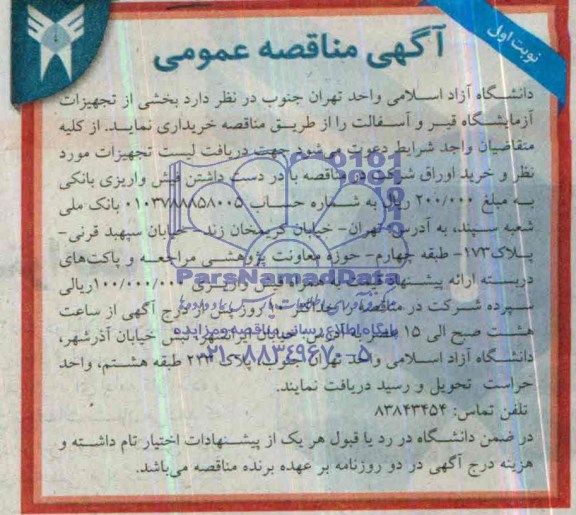 نوبت اول
آگهی مناقصه عمومی
دانشگاه آزاد اسلامی واحد تهران جنوب در نظر دارد بخشی از تجهیزات
آزمایشگاه قیر و آسفالت را از طریق مناقصه خریداری نماید. از کلیه
متقاضیان واجد شرایط دعوت می‌شود جهت دریافت لیست تجهیزات مورد
نظر و خرید اوراق شرکت در مناقصه با در دست داشتن فیش واریزی بانکی
به مبلغ ۲۰۰/۰۰۰ ریال به شماره حساب بانک ملی
شعبه سیند، به آدرس تهران- خیابان کریمخان زند- خیابان سپهبد قرنی-
پلاک۱۷۳- طبقه چهارم- حوزه معاونت پژوهشی مراجعه و پاکت‌های
دربسته ارائه پیشنهاد قیمت به همراه فیش واریزی ۱۰۰/۰۰۰/۰۰۰ریالی
سپرده شرکت در مناقصه را حداکثر ۱۰ روز پس از درج آگهی از ساعت
هشت صبح الی ۱۵ عصر به آدرس خیابان ایرانشهر، نبش خیابان آذرشهر،
دانشگاه آزاد اسلامی واحد تهران جنوب، پلاک ۲۲۳ طبقه هشتم، واحد
حراست تحویل و رسید دریافت نمایند.
تلفن تماس: ۸۳۸۴۳۴۵۴
در ضمن دانشگاه در رد یا قبول هر یک از پیشنهادات اختیار تام داشته و
هزینه درج آگهی در دو روزنامه بر عهده برنده مناقصه می‌باشد.
ParsNamadData
پایگاه اطلاع رسانی مناقصه و مزایده
۰۲۱-۸۸۳۴۹۶۷۰-۵